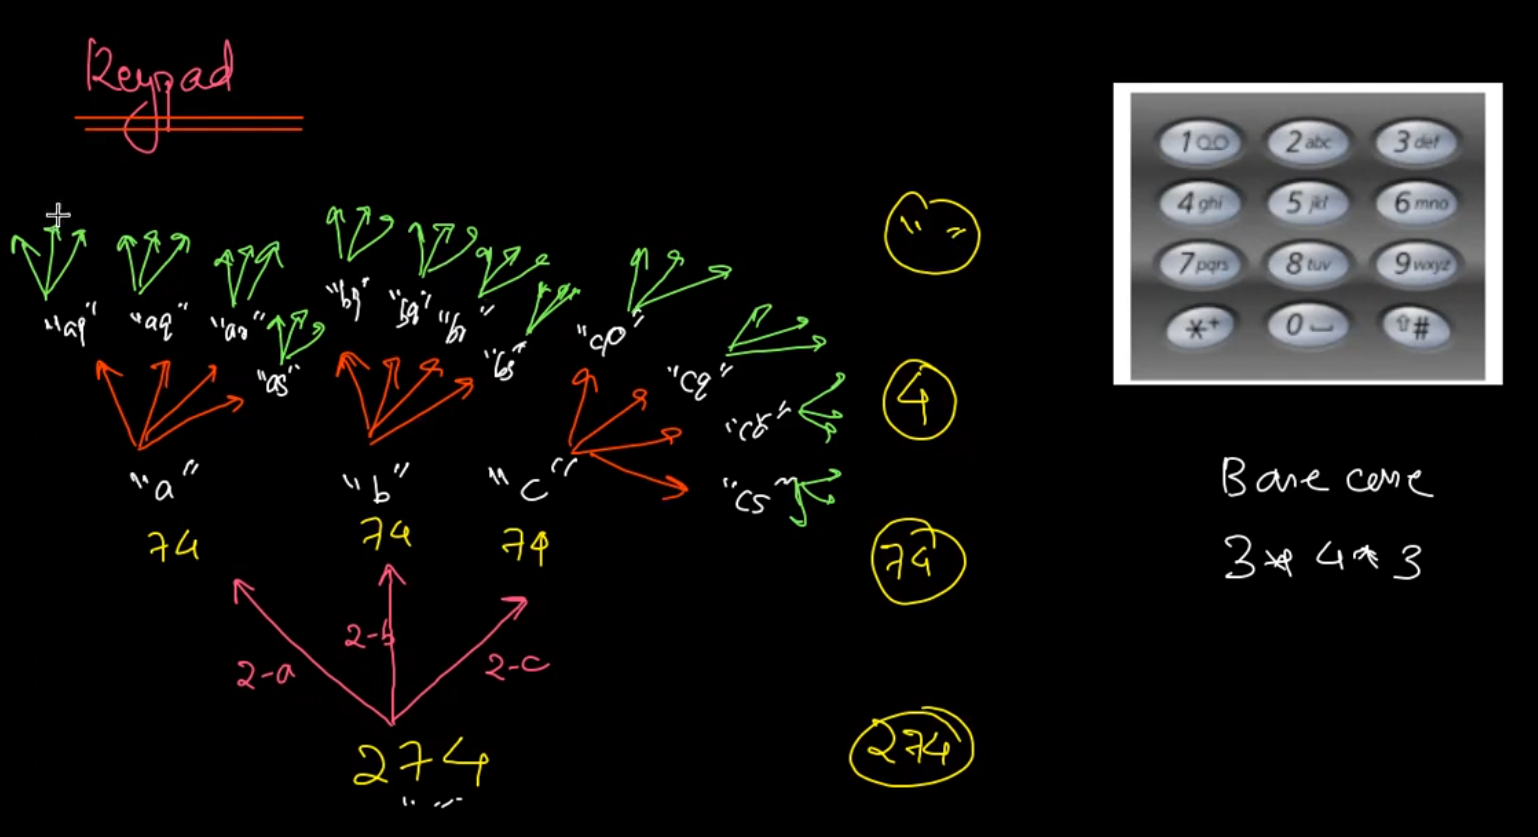 Keypad
" "
"ap" "aq" "ar" "as" "bp" "bq" "br" "bs" "cp" "cq" "cr" "cs"
4
"a" "b" "c"
74 74 74
74
2-a 2-b 2-c
274
" "
274
1 2 abc 3 def
4 ghi 5 jkl 6 mno
7 pqrs 8 tuv 9 wxyz
*+ 0 #
Base case
3 * 4 * 3